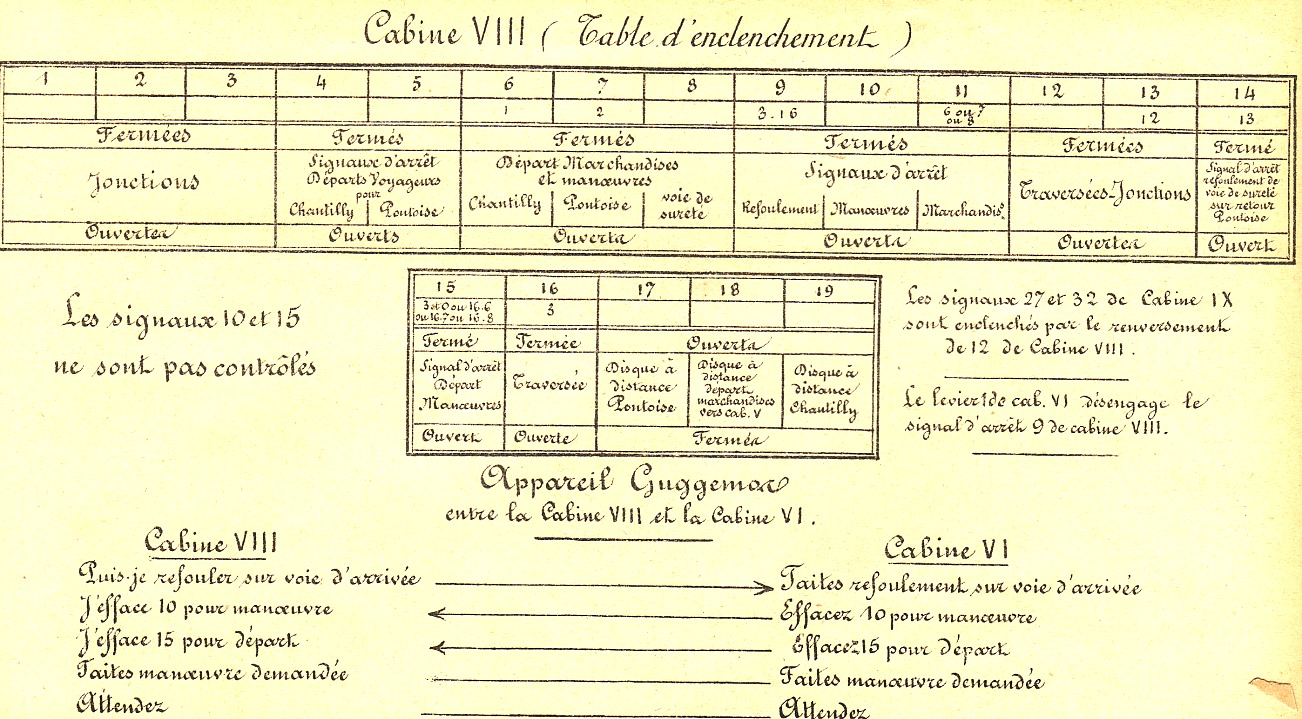 Cabine VIII ( Table d'enclenchement )
1 2 3 4 5 6 7 8 9 10 11 12 13 14
1 2 3.16 6 ou 7 ou 8 12 13
Fermées Fermés Fermés Fermés Fermées Fermé
Jonctions
Signaux d'arrêt
Départs Voyageurs
pour
Chantilly Pontoise
Départ Marchandises
et manœuvres
Chantilly Pontoise voie de sureté
Signaux d'arrêt
Refoulement Manœuvres Marchandis.
Traversées-Jonctions
Signal d'arrêt
refoulement de
voie de sureté
sur retour
Pontoise
Ouvertes Ouverts Ouverts Ouverts Ouvertes Ouvert
Les signaux 10 et 15
ne sont pas contrôlés
15 16 17 18 19
3 et 0 ou 16.6
ou 16.7 ou 16.8
3
Fermé Fermée Ouverts
Signal d'arrêt
Départ
Manœuvres
Traversée
Disque à
distance
Pontoise
Disque à
distance
départ
marchandises
vers cab. V
Disque à
distance
Chantilly
Ouvert Ouverte Fermés
Les signaux 27 et 32 de Cabine IX
sont enclenchés par le renversement
de 12 de Cabine VIII.
Le levier 1 de cab. VI désengage le
signal d'arrêt 9 de cabine VIII.
Appareil Guggemos
entre la Cabine VIII et la Cabine VI.
Cabine VIII Cabine VI
Puis-je refouler sur voie d'arrivée Faites refoulement sur voie d'arrivée
J'efface 10 pour manœuvre Effacez 10 pour manœuvre
J'efface 15 pour départ Effacez 15 pour départ
Faites manœuvre demandée Faites manœuvre demandée
Attendez Attendez